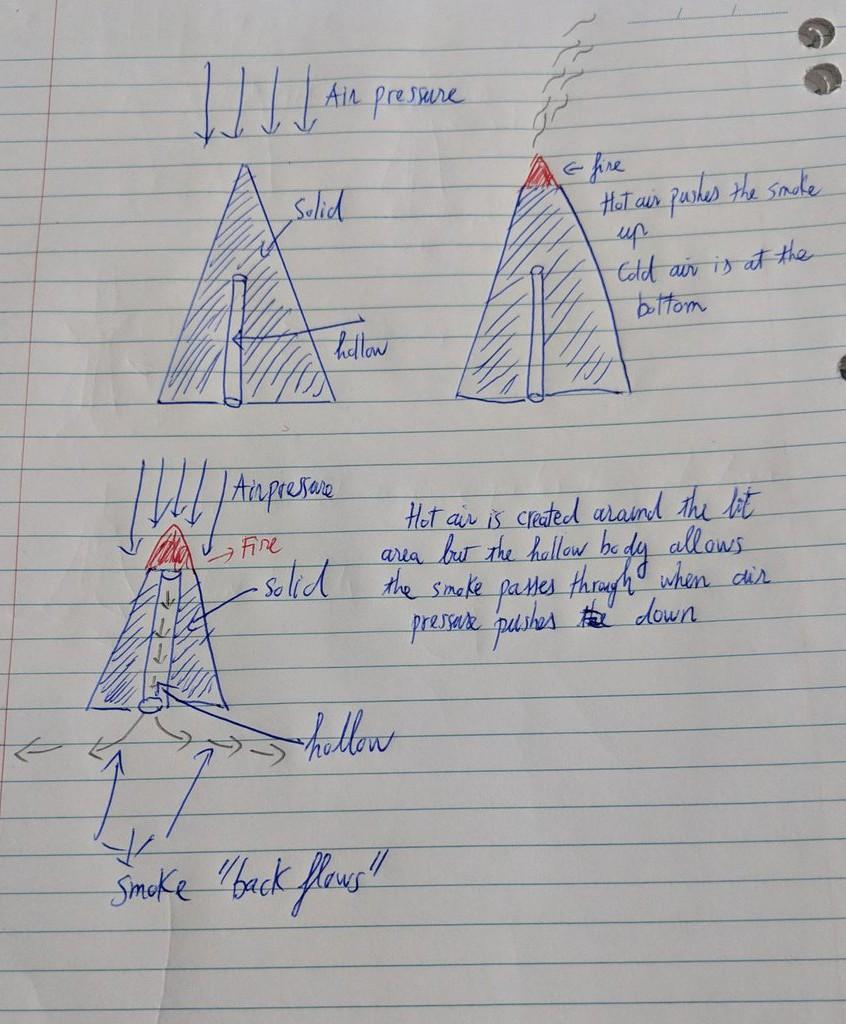 Air pressure
Solid
hollow
← fire
Hot air pushes the smoke
up
Cold air is at the
bottom
Air pressure
→ Fire
solid
hollow
Smoke "back flows"
Hot air is created around the lit
area but the hollow body allows
the smoke passes through when air
pressure pushes down